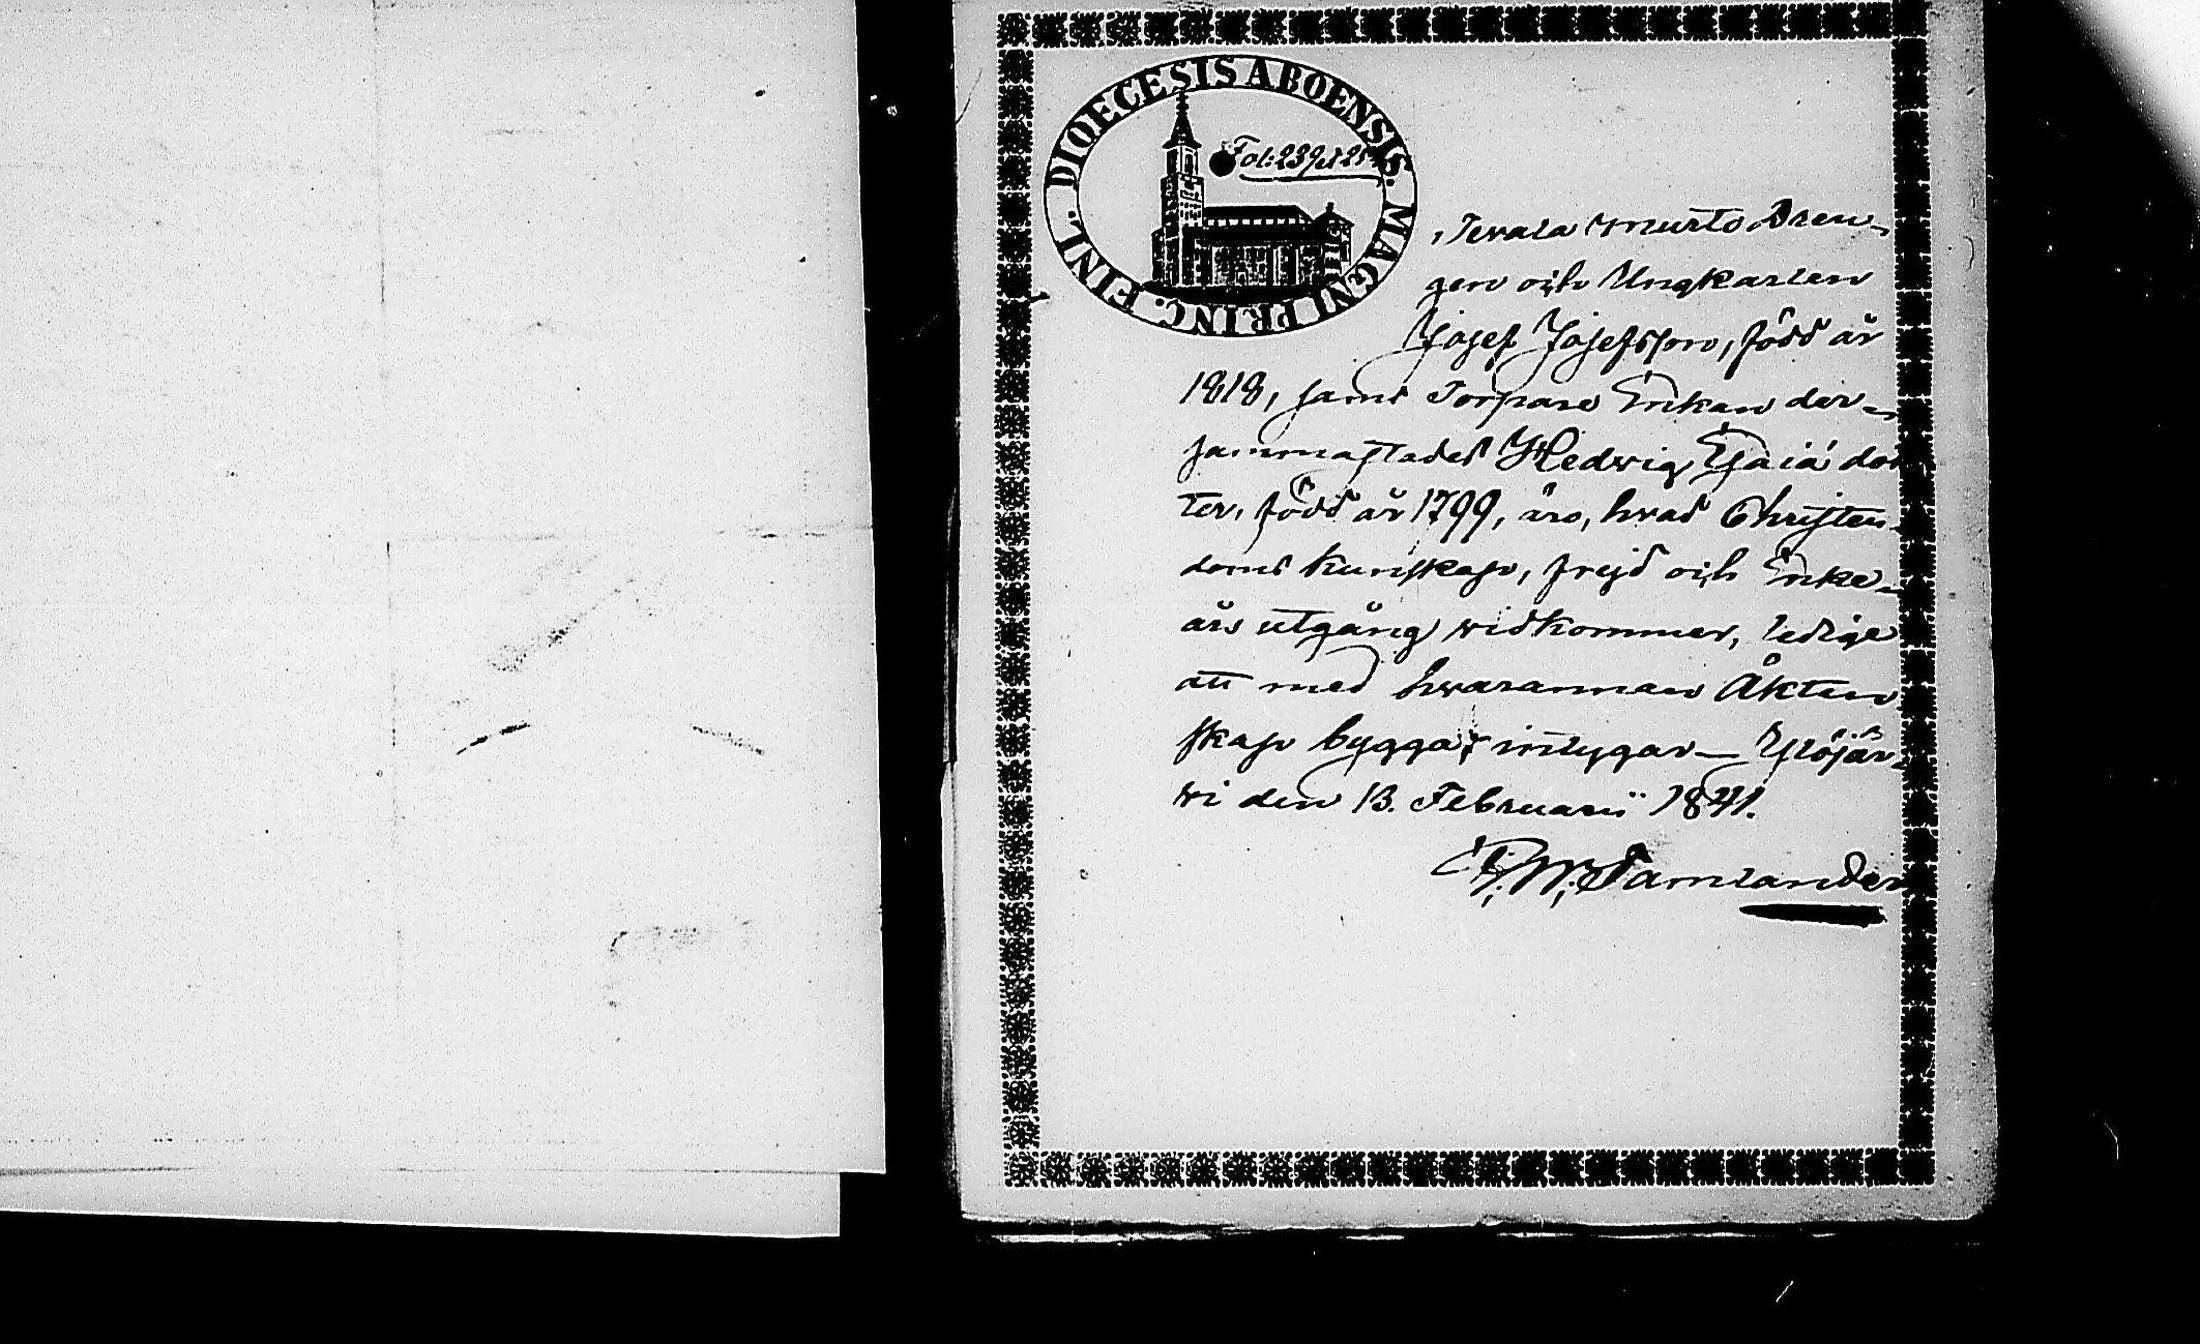 DIOECESIS ABOENSIS. MAGNI PRINC. FINL.
Fol: 239 et
Drän-
gen och Ungkarlen
Josef Josefsson, född år
1818, samt Torpare Enkan der-
sammastädes Hedwig Esaiæ dot-
ter, född år 1799, äro, hvad Christen-
doms kunskap, frejd och Enke-
års utgång widkommer, ledige
att med hvarannan Äkten
skap bygga; intygar — Ylöjär-
wi den 13. Februarii 1841.
Tamlander